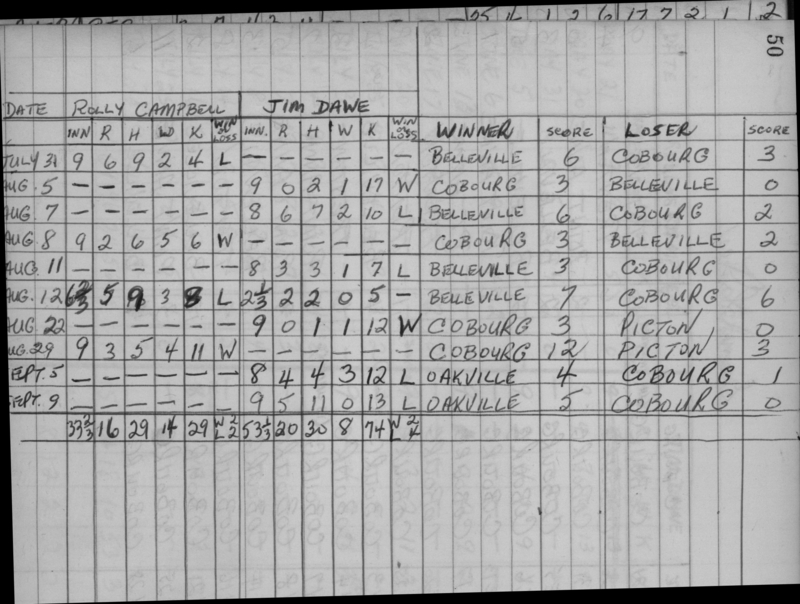 25 4 1 2 6 17 7 2 1 .2
50
DATE ROLLY CAMPBELL JIM DAWE
INN R H W K WIN OR LOSS INN. R H W K WIN OR LOSS WINNER SCORE LOSER SCORE
JULY 31 9 6 9 2 4 L — — — — — — BELLEVILLE 6 COBOURG 3
AUG. 5 — — — — — — 9 0 2 1 17 W COBOURG 3 BELLEVILLE 0
AUG. 7 — — — — — — 8 6 7 2 10 L BELLEVILLE 6 COBOURG 2
AUG. 8 9 2 6 5 6 W — — — — — — COBOURG 3 BELLEVILLE 2
AUG. 11 — — — — — — 8 3 3 1 7 L BELLEVILLE 3 COBOURG 0
AUG. 12 6 2/3 5 9 3 8 L 2 1/3 2 2 0 5 — BELLEVILLE 7 COBOURG 6
AUG. 22 — — — — — — 9 0 1 1 12 W COBOURG 3 PICTON 0
UG. 29 9 3 5 4 11 W — — — — — — COBOURG 12 PICTON 3
EPT. 5 — — — — — — 8 4 4 3 12 L OAKVILLE 4 COBOURG 1
EPT. 9 — — — — — — 9 5 11 0 13 L OAKVILLE 5 COBOURG 0
33 2/3 16 29 14 29 W 2 L 2 53 1/3 20 30 8 74 W 2 L 4